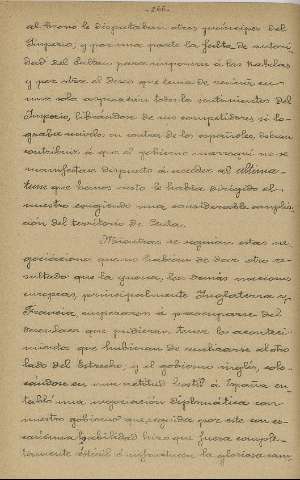 - 266 -
al trono le disputaban otros príncipes del
Imperio, y por una parte la falta de autori-
dad del Sultan para imponerse á las Kabilas
y por otra el deseo que tenia de reunir en
una sola aspiracion todos los sentimientos del
Imperio, librándose de sus competidores si lo-
graba unirlos en contra de los españoles, debian
contribuir á que el gobierno marroquí no se
manifestara dispuesto á acceder al ultima-
tum que hemos visto le habia dirigido el
nuestro exigiendo una considerable amplia-
ción del territorio de Ceuta.
Mientras se seguian estas ne-
gociaciones que no habian de dar otro re-
sultado que la guerra, las demás naciones
europeas, principalmente Inglaterra y
Francia, empezaron á preocuparse del
desenlace que pudieran tener los aconteci-
mientos que hubieran de realizarse al otro
lado del Estrecho, y el gobierno inglés, colo-
cándose en una actitud hostil á España en-
tabló una negociación diplomática con
nuestro gobierno que seguida por este con es-
casísima habilidad hizo que fuera comple-
tamente estéril é infructuosa la gloriosa cam-